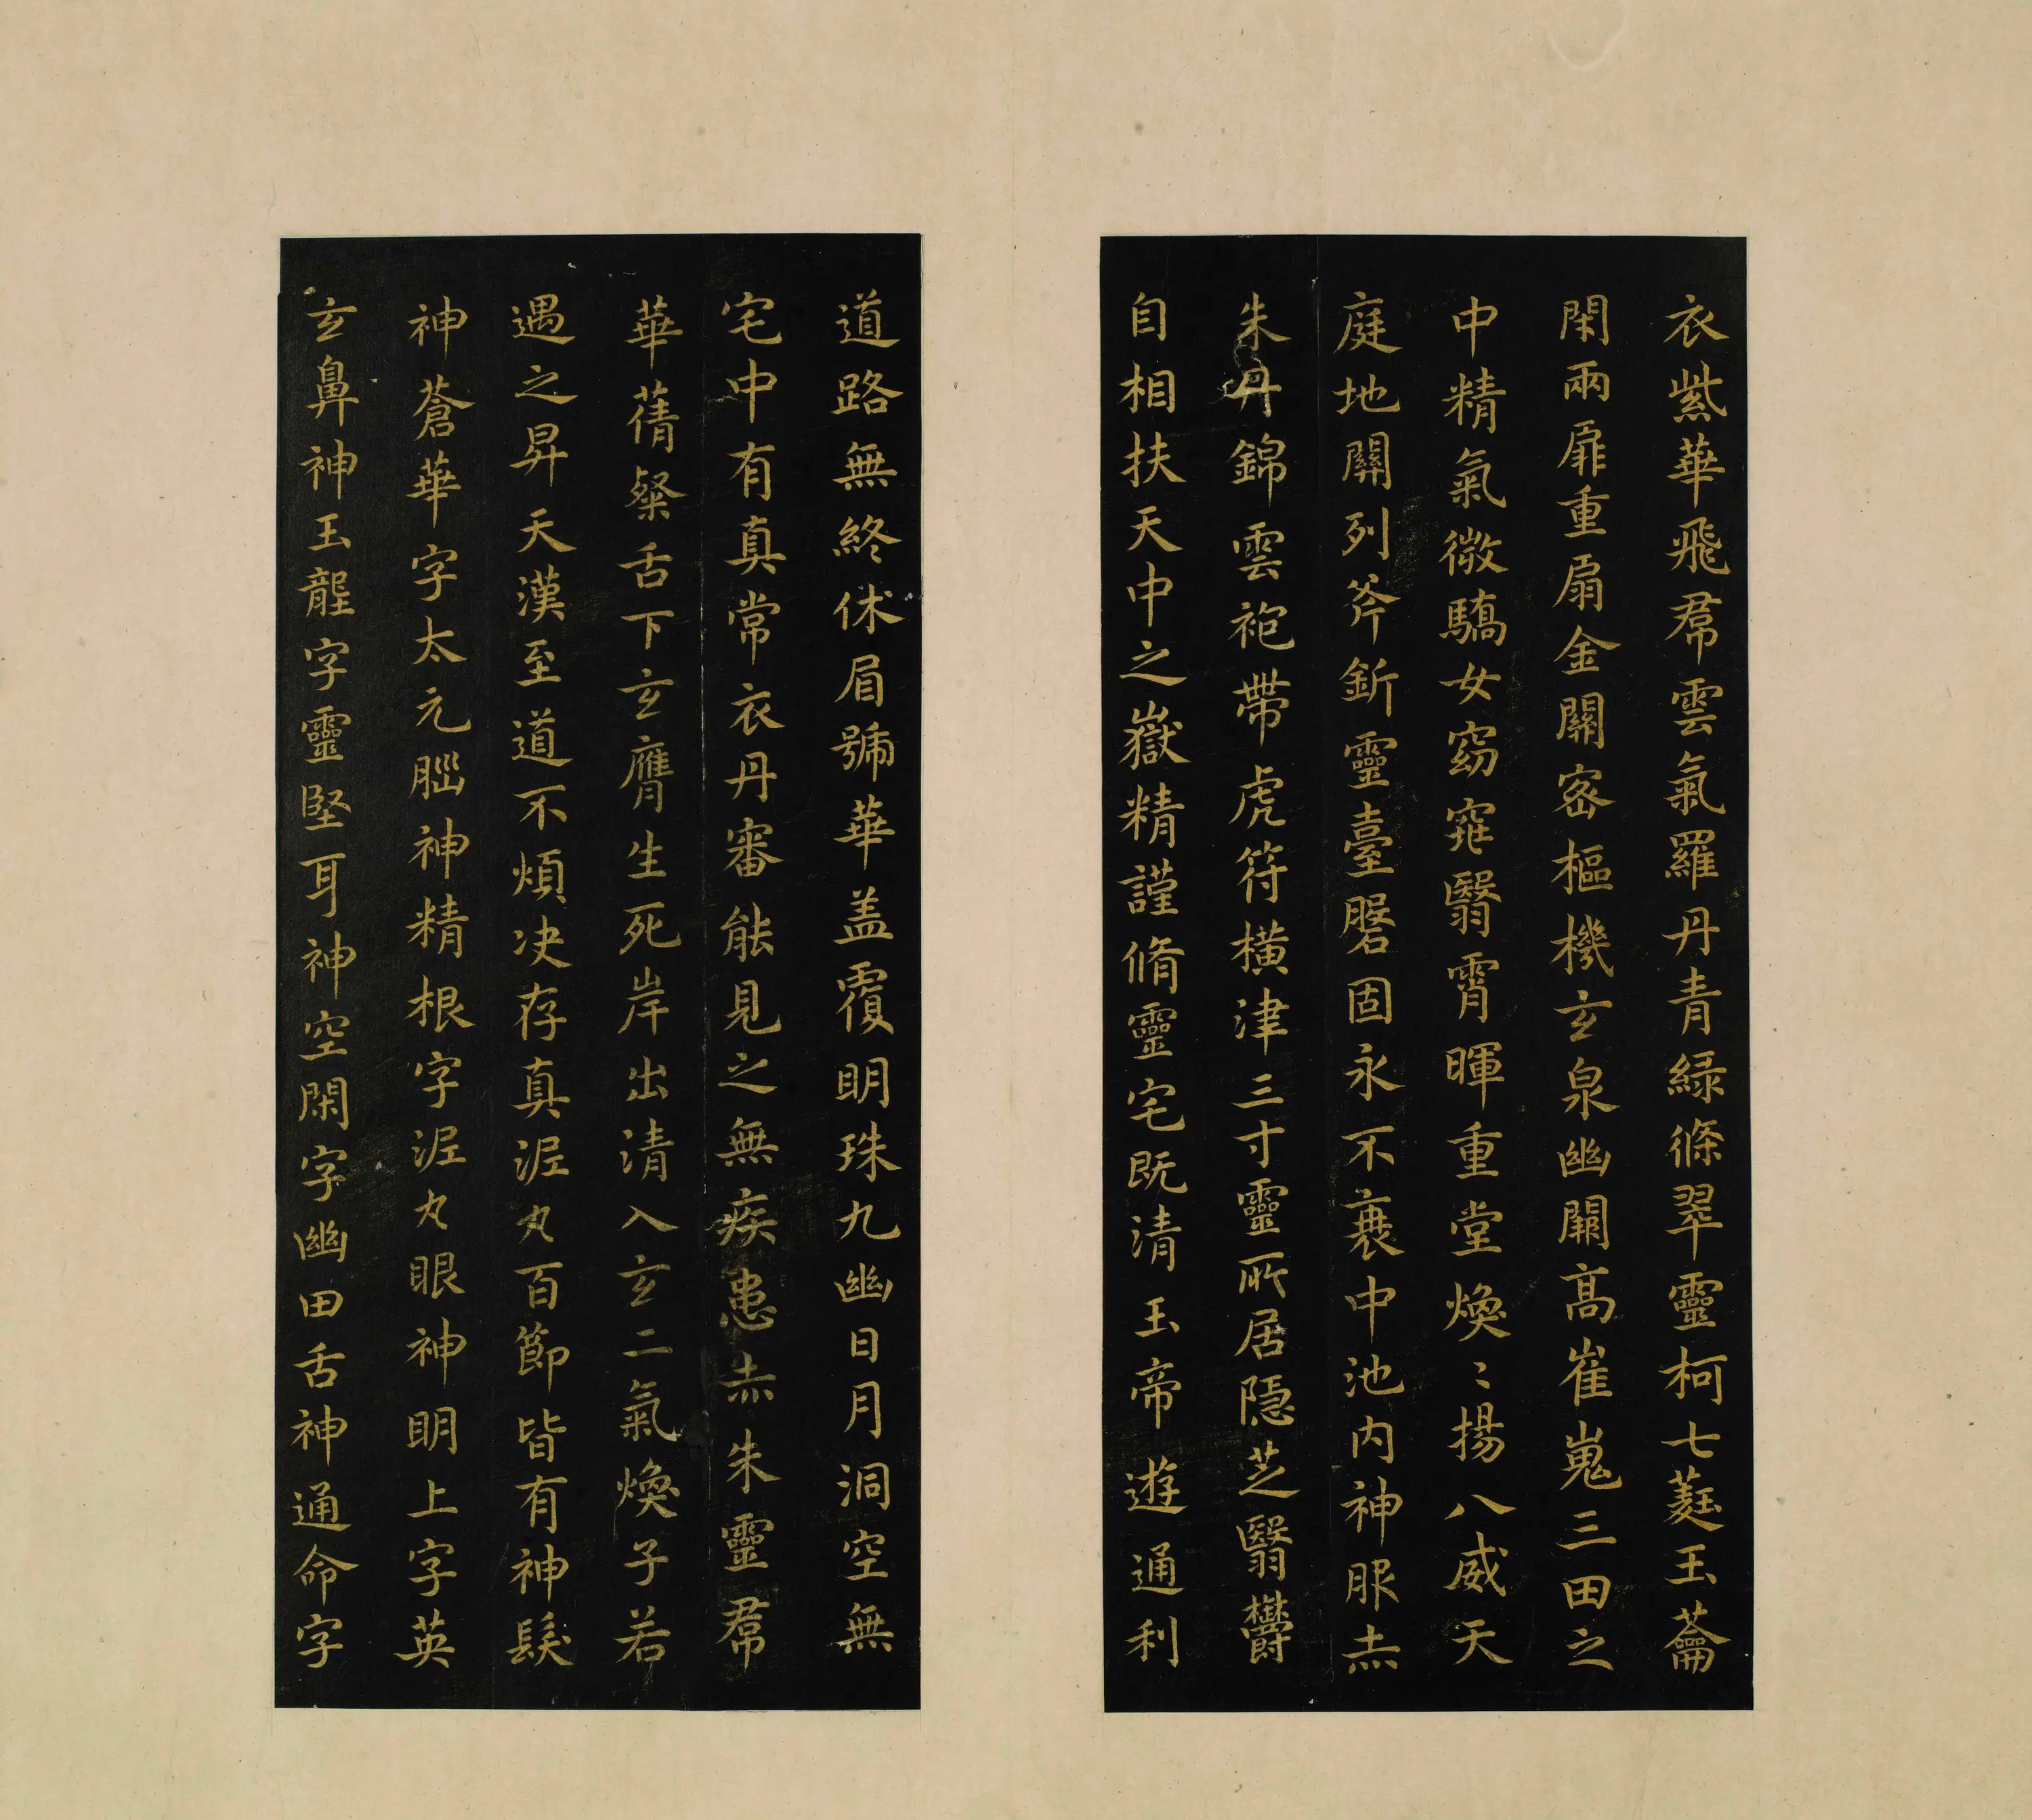 衣紫華飛帬雲氣羅丹青緑條翠靈柯七蕤玉蘥
閑兩扉重扇金關密樞機玄泉幽關髙崔嵬三田之
中精氣微驕女窈窕翳霄暉重堂煥〻揚八威天
庭地關列斧釿靈臺磐固永不衰中池内神服赤
朱丹錦雲袍帶虎符橫津三寸靈所居隱芝翳欝
自相扶天中之嶽精謹脩靈宅既清玉帝遊通利
道路無終休眉號華盖覆明珠九幽日月洞空無
宅中有真常衣丹審能見之無疾患赤朱靈帬
華蒨粲舌下玄膺生死岸出清入玄二氣煥子若
遇之昇天漢至道不煩决存真泥丸百節皆有神髮
神蒼華字太元腦神精根字泥丸眼神明上字英
玄鼻神玉壟字靈堅耳神空閑字幽田舌神通命字